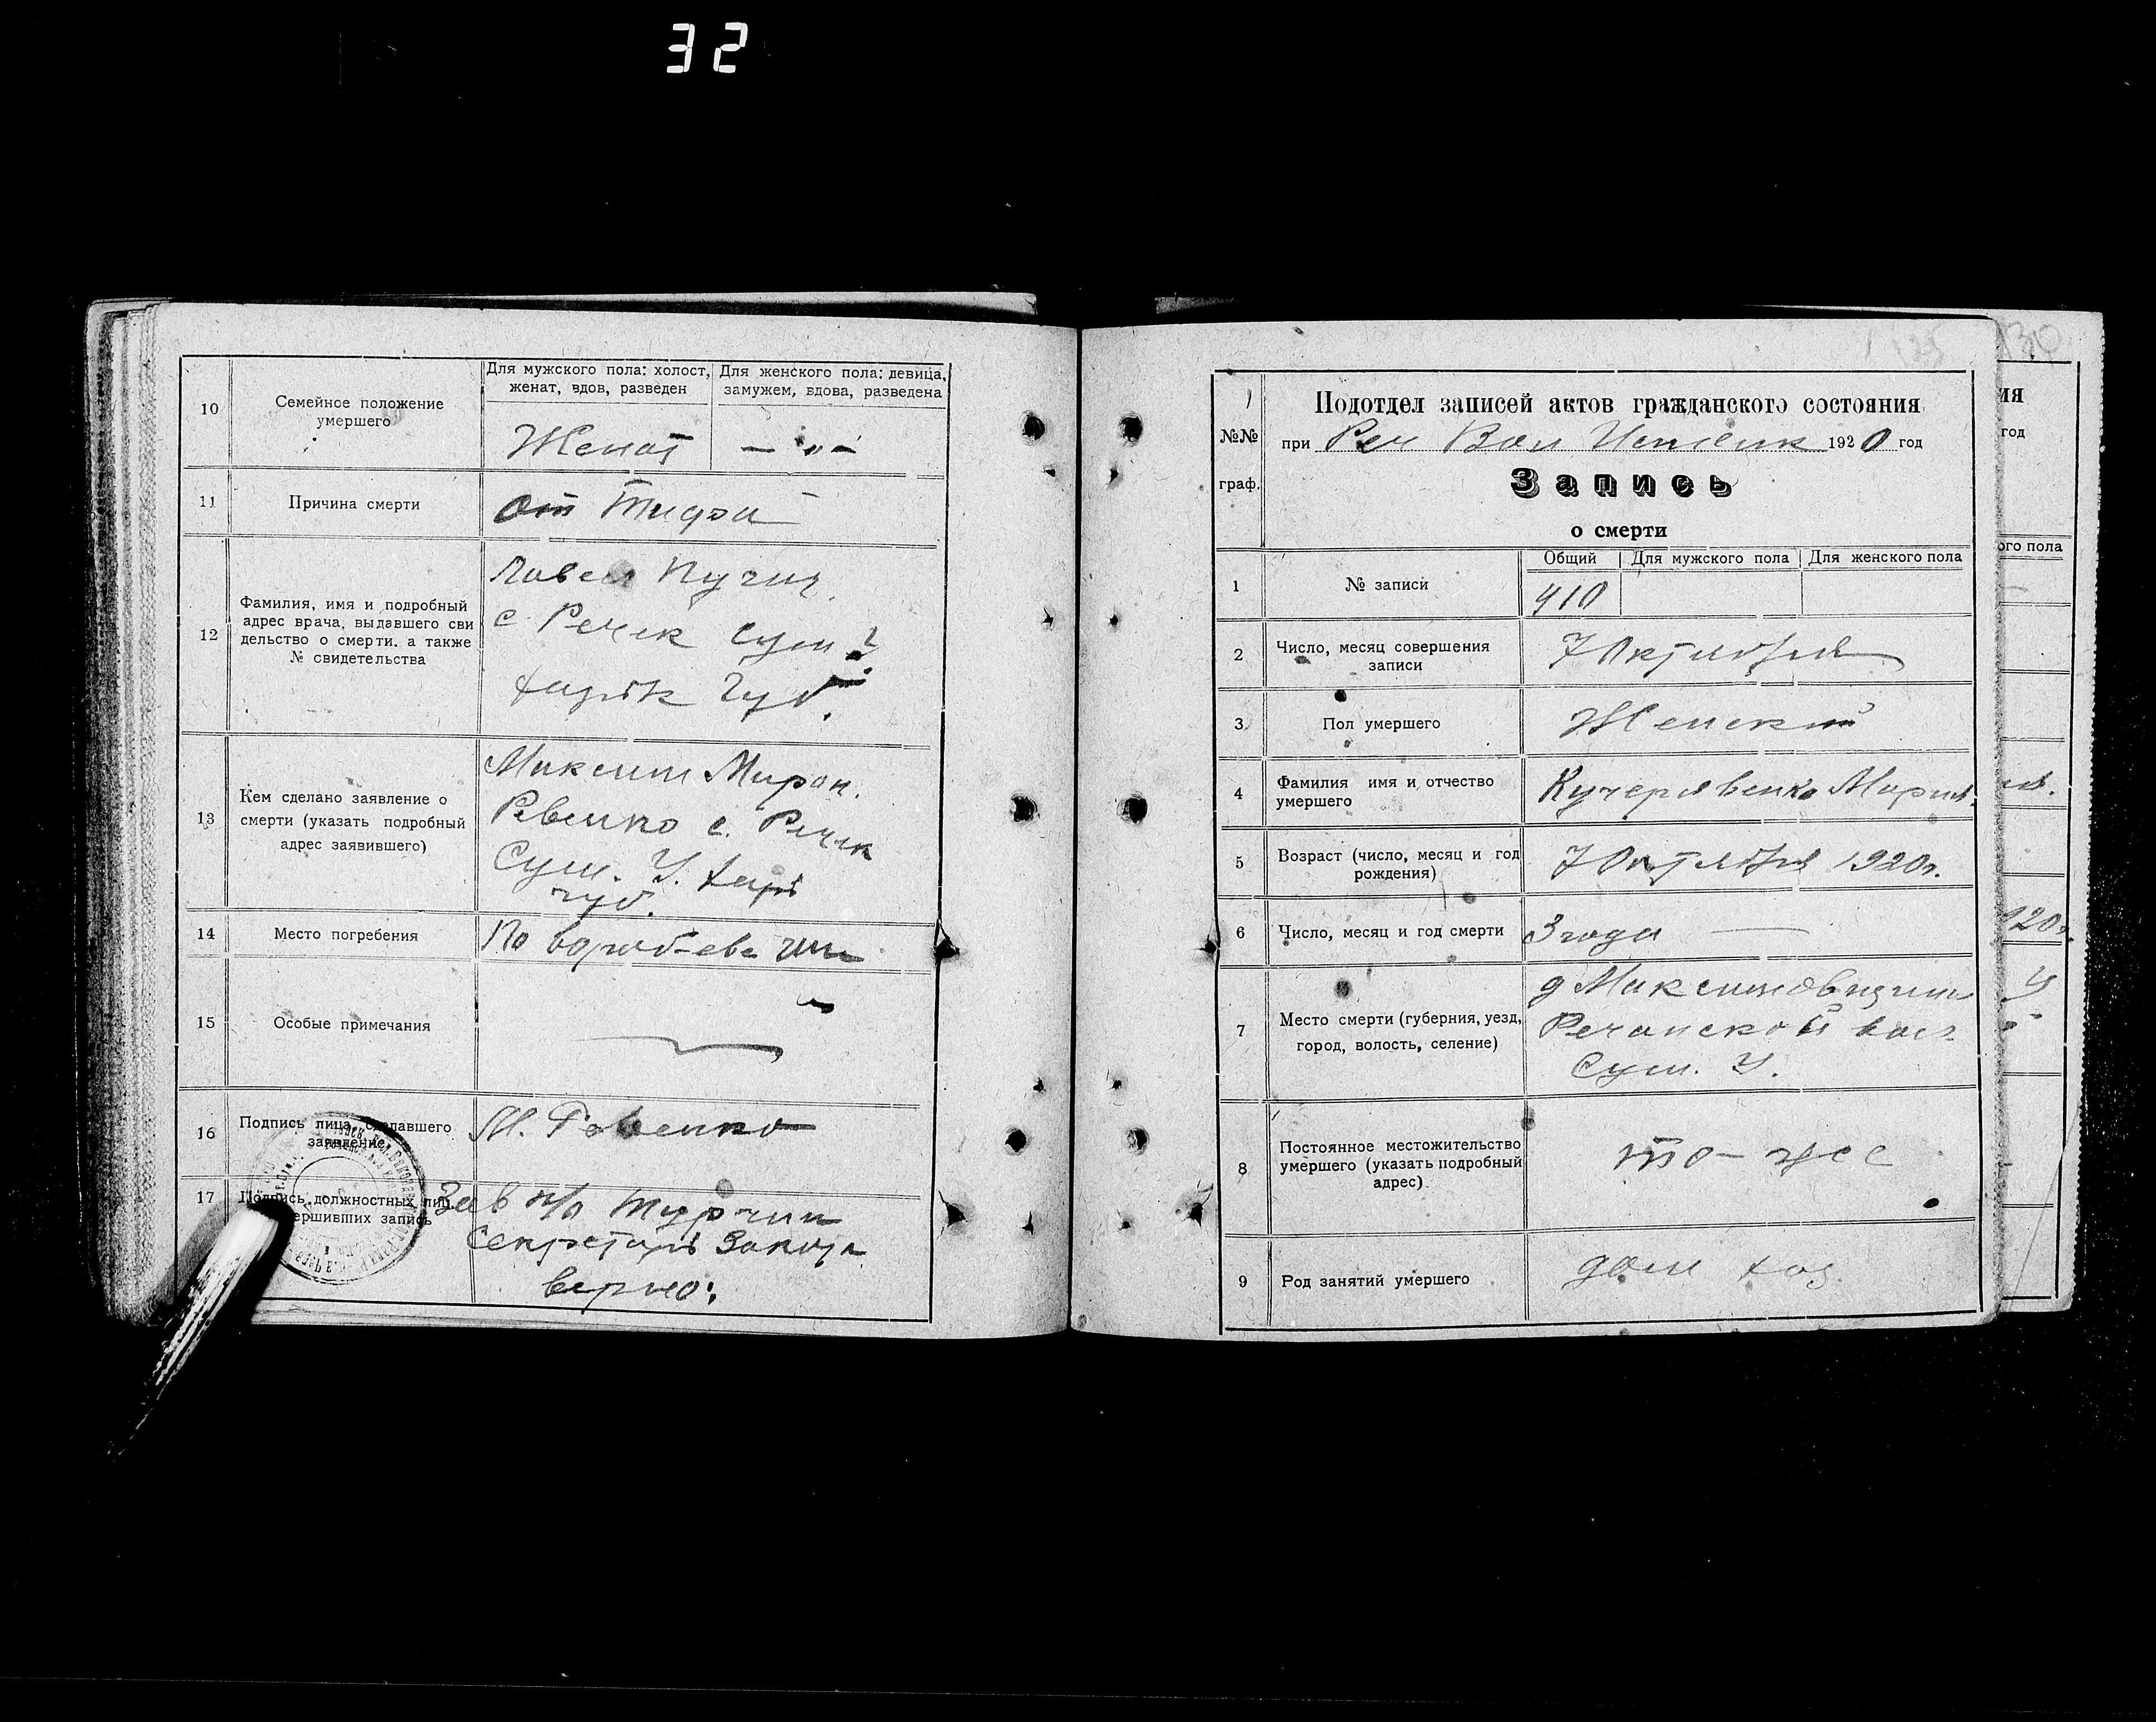 32
10
Семейное положение
умершего
Для мужского пола: холост,
женат, вдов, разведен
Для женского пола: девица,
замужем, вдова, разведена
Женат
— „ —
11
Причина смерти
от Тифа
12
Фамилия, имя и подробный
адрес врача, выдавшего сви
дельство о смерти, а также
№ свидетельства
Павел Пугач.
с. Речек Сум.
Харьк Губ.
13
Кем сделано заявление о
смерти (указать подробный
адрес заявившего)
Максим Мирон.
Ревенко с. Речек
Сум. У. Харь
губ.
14
Место погребения
15
Особые примечания
16
Подпись лица, сделавшего
заявление
М. Ревенко
17
Подпись должностных лиц
ершивших запись
Зав п/о
Секретарь
верно:
125
130
№№
граф.
Подотдел записей актов гражданского состояния
при Реч Вол Исполк 1920 год
Запись
о смерти
1
№ записи
Общий
Для мужского пола
Для женского пола
410
2
Число, месяц совершения
записи
7 Октября
3
Пол умершего
Женский
4
Фамилия имя и отчество
умершего
Кучерявенко Мария.
5
Возраст (число, месяц и год
рождения)
7 Октября 1920г.
6
Число, месяц и год смерти
3 года —
7
Место смерти (губерния, уезд,
город, волость, селение)
д Максимовщина
Речанской вол
Сум. У.
8
Постоянное местожительство
умершего (указать подробный
адрес)
то-же
9
Род занятий умершего
дом хоз.
ия
год
ого пола
920г.
У